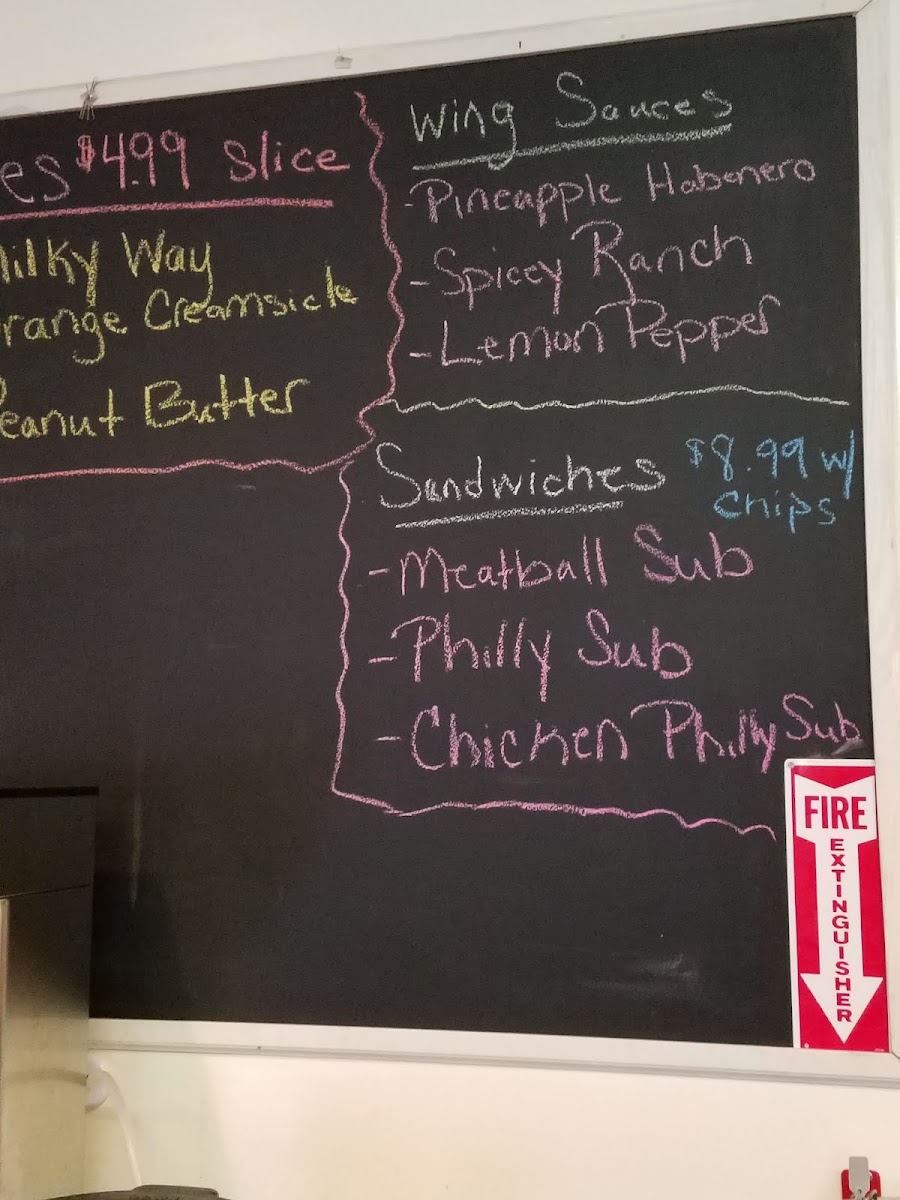 es $4.99 slice
Milky Way
Orange Creamsicle
Peanut Butter
Wing Sauces
-Pineapple Habenero
-Spicey Ranch
-Lemon Pepper
Sandwiches $8.99 w/
chips
-Meatball Sub
-Philly Sub
-Chicken Philly Sub
FIRE
EXTINGUISHER